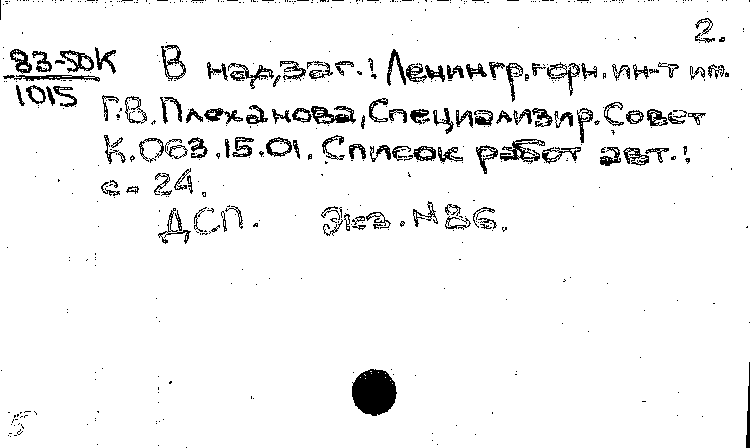 2.
83-50К
1015
В надзаг.: Ленингр.горн.ин-т им.
Г.В.Плеханова, Специализир.Совет
К.063.15.01. Список работ авт.:
с. 24.
ДСП. Экз. № 86.
5